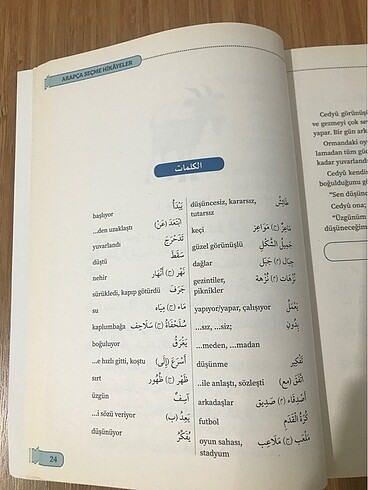 ARAPÇA SEÇME HİKÂYELER
الكلمات
başlıyor يَبْدَأُ
...den uzaklaştı ابْتَعَدَ (عَنْ)
yuvarlandı تَدَحْرَجَ
düştü سَقَطَ
nehir نَهْر (ج) أَنْهَار
sürükledi, kapıp götürdü جَرَفَ
su مَاء (ج) مِيَاه
kaplumbağa سُلَحْفَاةُ (ج) سَلَاحِف
boğuluyor يَغْرَقُ
...e hızlı gitti, koştu أَسْرَعَ (إِلَى)
sırt ظَهْر (ج) ظُهُور
üzgün آسِفٌ
...i sözü veriyor يَعِدُ (بِ)
düşünüyor يُفَكِّرُ
düşüncesiz, kararsız, طَائِشٌ
tutarsız
keçi مَاعِزٌ (ج) مَوَاعِز
güzel görünüşlü جَمِيلُ الشَّكْلِ
dağlar جِبَال (م) جَبَل
gezintiler, نُزْهَات (م) نُزْهَة
piknikler
yapıyor/yapar, çalışıyor يَعْمَلُ
...sız, ...siz; بِدُونِ
...meden, ...madan
düşünme تَفْكِير
...ile anlaştı, sözleşti اتَّفَقَ (مع)
arkadaşlar أَصْدِقَاء (م) صَدِيق
futbol كُرَةُ الْقَدَمِ
oyun sahası, مَلْعَب (ج) مَلَاعِب
stadyum
24
Cedyû görünüşü
ve gezmeyi çok sev
yapar. Bir gün arka
Ormandaki oy
lamadan tüm güc
kadar yuvarlandı
Cedyû kendisi
boğulduğunu g
"Sen düşünc
Cedyû ona;
"Üzgünüm
düşüneceğim